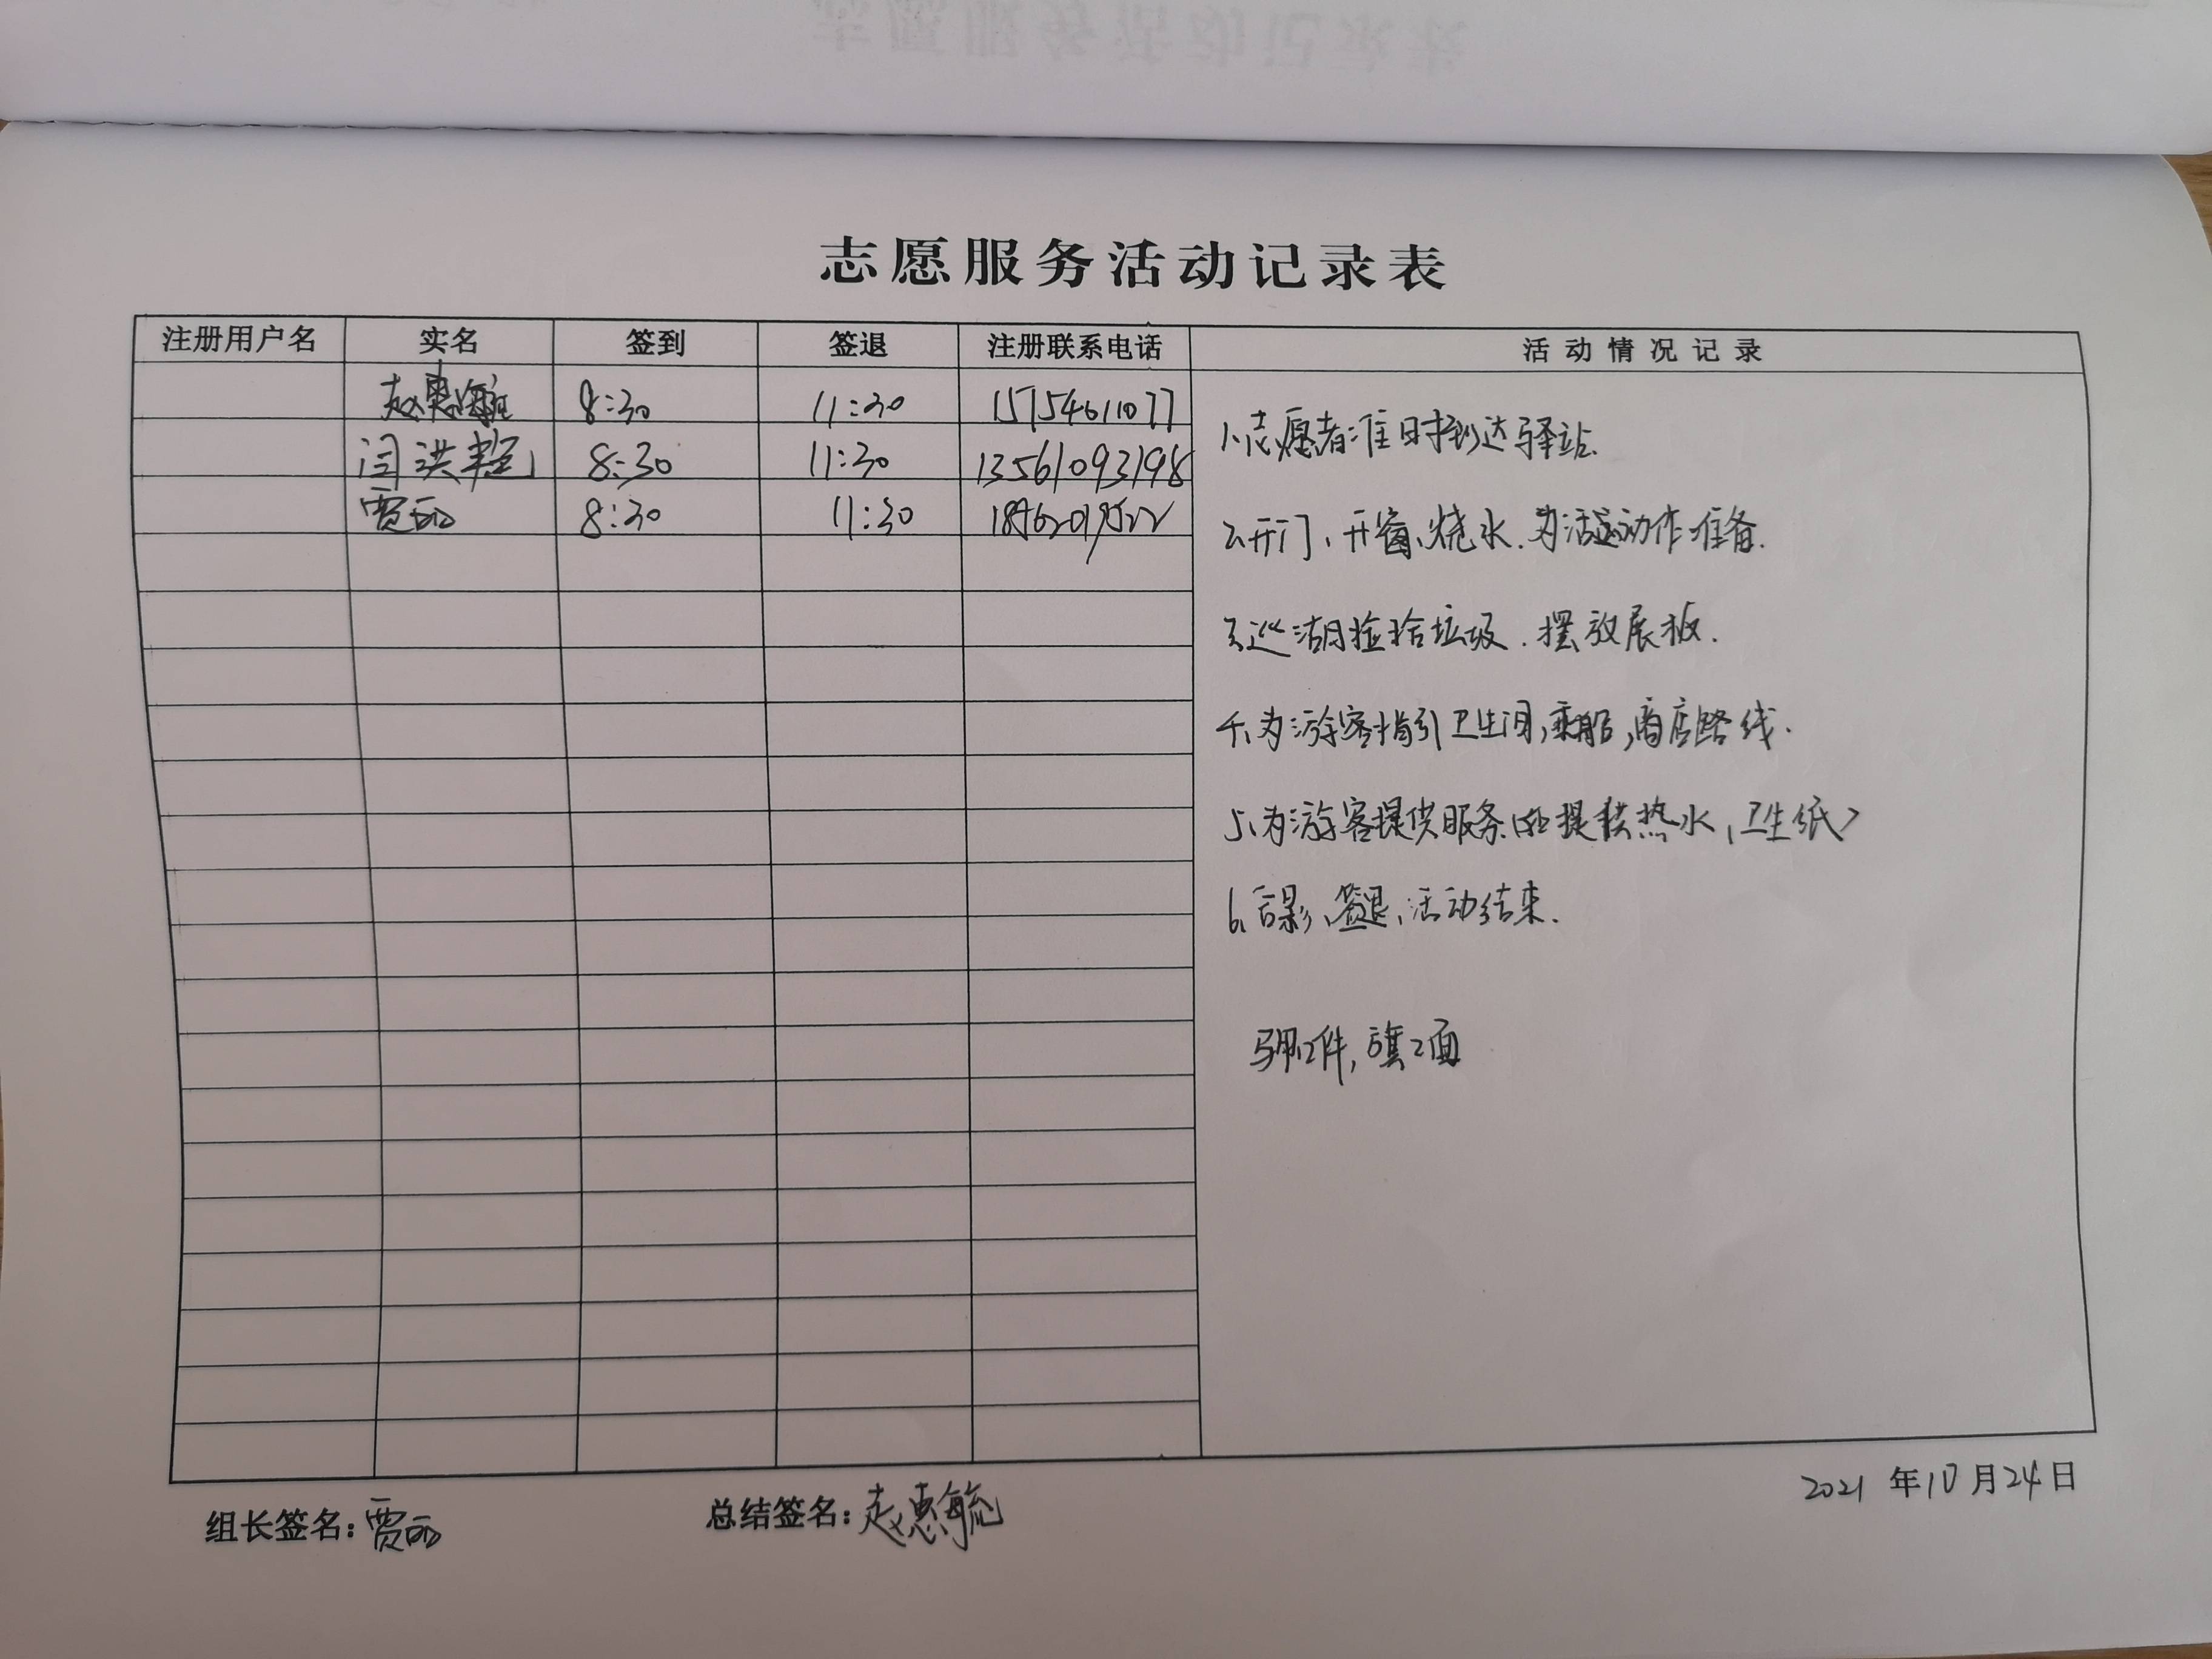 志愿服务活动记录表
注册用户名 实名 签到 签退 注册联系电话 活动情况记录
赵惠毓 8:30 11:30 15154611077
闫洪 8:30 11:30 13561093198
贾丽 8:30 11:30
1、志愿者准时到达驿站.
2、开门、开窗、烧水.为活动作准备.
3、巡湖捡拾垃圾.摆放展板.
4、为游客指引卫生间,乘船,商店路线.
5、为游客提供服务(提供热水,卫生纸)
6、合影、签退、活动结束.
马甲2件,旗2面
组长签名:贾丽 总结签名:赵惠毓 2021年10月24日